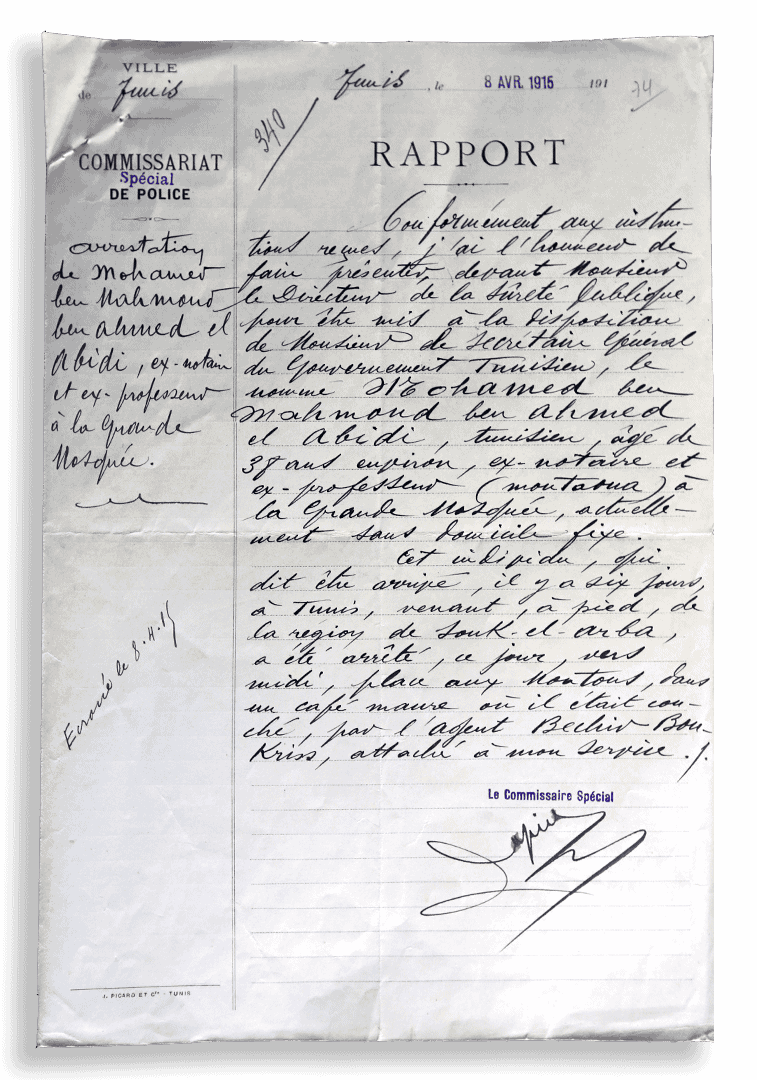 VILLE
de Tunis
COMMISSARIAT
Spécial
DE POLICE
arrestation
de Mohamed
ben Mahmoud
ben ahmed el
Abidi, ex-notaire
et ex-professeur
à la Grande
Mosquée.
Ecroué le 8.4.15
J. PICARD ET Cie - TUNIS
Tunis, le 8 AVR. 1915 191
340
RAPPORT
Conformément aux instruc-
tions reçues, j'ai l'honneur de
faire présenter, devant Monsieur
le Directeur de la Sûreté Publique,
pour être mis à la disposition
de Monsieur le Secrétaire Général
du Gouvernement Tunisien, le
nommé Mohamed ben
Mahmoud ben ahmed
el Abidi, tunisien, âgé de
38 ans environ, ex-notaire et
ex-professeur (moutaoua) à
la Grande Mosquée, actuelle-
ment sans domicile fixe.
Cet individu, qui
dit être arrivé, il y a six jours,
à Tunis, venant, à pied, de
la région de Souk-el-arba,
a été arrêté, ce jour, vers
midi, place aux Moutons, dans
un café maure où il était cou-
ché, par l'agent Bechir Bou-
Kriss, attaché à mon service./.
Le Commissaire Spécial